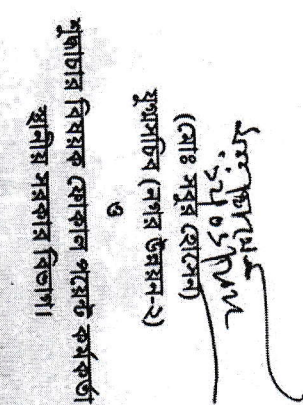 (মোঃ সবুর হোসেন)
যুগ্মসচিব (নগর উন্নয়ন-২)
ও
শুদ্ধাচার বিষয়ক ফোকাল পয়েন্ট কর্মকর্তা
স্থানীয় সরকার বিভাগ।